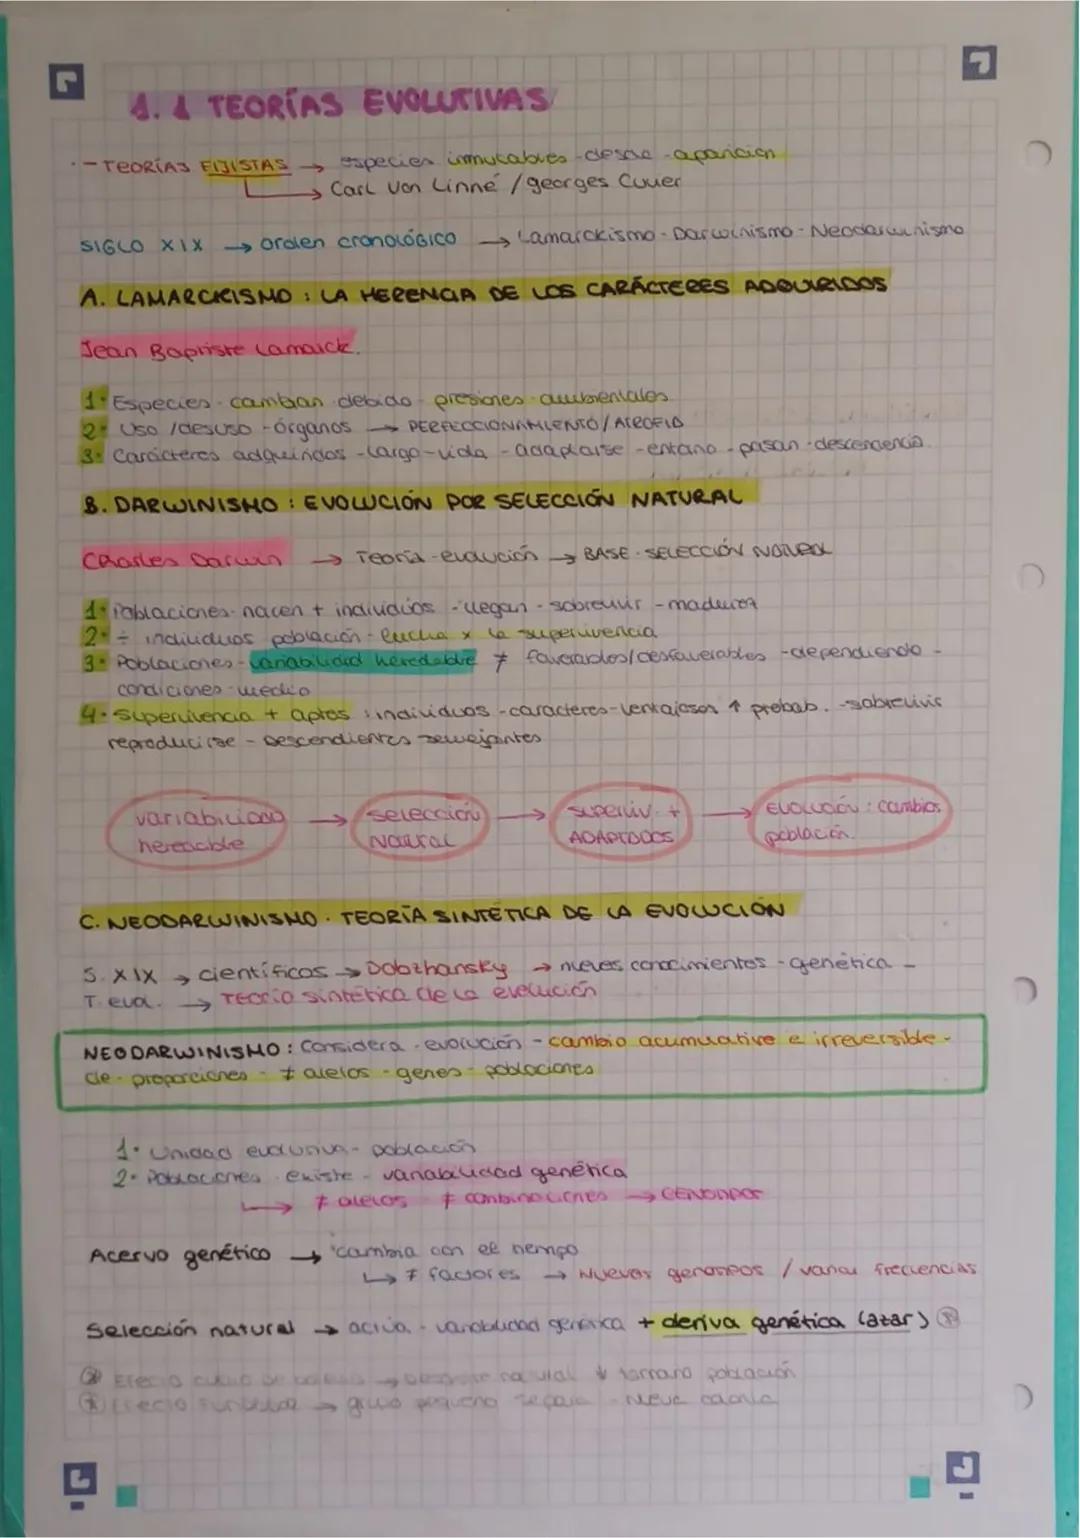 1.1 TEORÍAS EVOLUTIVAS
- TEORÍAS FIJISTAS → especies inmutables - desde - aparición
→ Carl Von Linné / georges Cuvier
SIGLO XIX → orden cronológico → Lamarckismo - Darwinismo - Neodarwinismo
A. LAMARCKISMO : LA HERENCIA DE LOS CARÁCTERES ADQUIRIDOS
Jean Baptiste Lamarck.
1· Especies - cambian - debido - presiones - ambientales
2· Uso / desuso - órganos → PERFECCIONAMIENTO / ATROFIA
3· Carácteres adquiridos - largo - vida - adaptarse - entorno - pasan - descendencia.
B. DARWINISMO : EVOLUCIÓN POR SELECCIÓN NATURAL
Charles Darwin → Teoría - evolución → BASE - SELECCIÓN NATURAL
1· Poblaciones - nacen + individuos - llegan - sobrevivir - madurez
2· ÷ individuos población - lucha x la supervivencia
3· Poblaciones - variabilidad heredable ≠ favorables/desfavorables - dependiendo -
condiciones - medio
4· Supervivencia + aptos : individuos - caracteres - ventajosos ↑ probab. - sobrevivir
reproducirse - Descendientes semejantes
variabilidad heredable → selección Natural → superviv. + ADAPTADOS → Evolución : cambios población.
C. NEODARWINISMO · TEORÍA SINTÉTICA DE LA EVOLUCIÓN
S. XIX → científicos → Dobzhansky → nuevos conocimientos - genética -
T. evol. → Teoría sintética de la evolución
NEODARWINISMO : Considera - evolución - cambio acumulativo e irreversible -
de - proporciones - ≠ alelos - genes - poblaciones
1· Unidad evolutiva - población
2· Poblaciones - existe - variabilidad genética
→ ≠ alelos ≠ combinaciones → GENOTIPOS
Acervo genético → cambia con el tiempo
→ ≠ factores → Nuevos genotipos / varíau frecuencias
Selección natural → actúa - variabilidad genética + deriva genética (azar) ⊛
⊛ Efecto cuello de botella → Desastre natural ↓ tamaño población
⊛ Efecto fundador → grupo pequeño separa - Nueva colonia